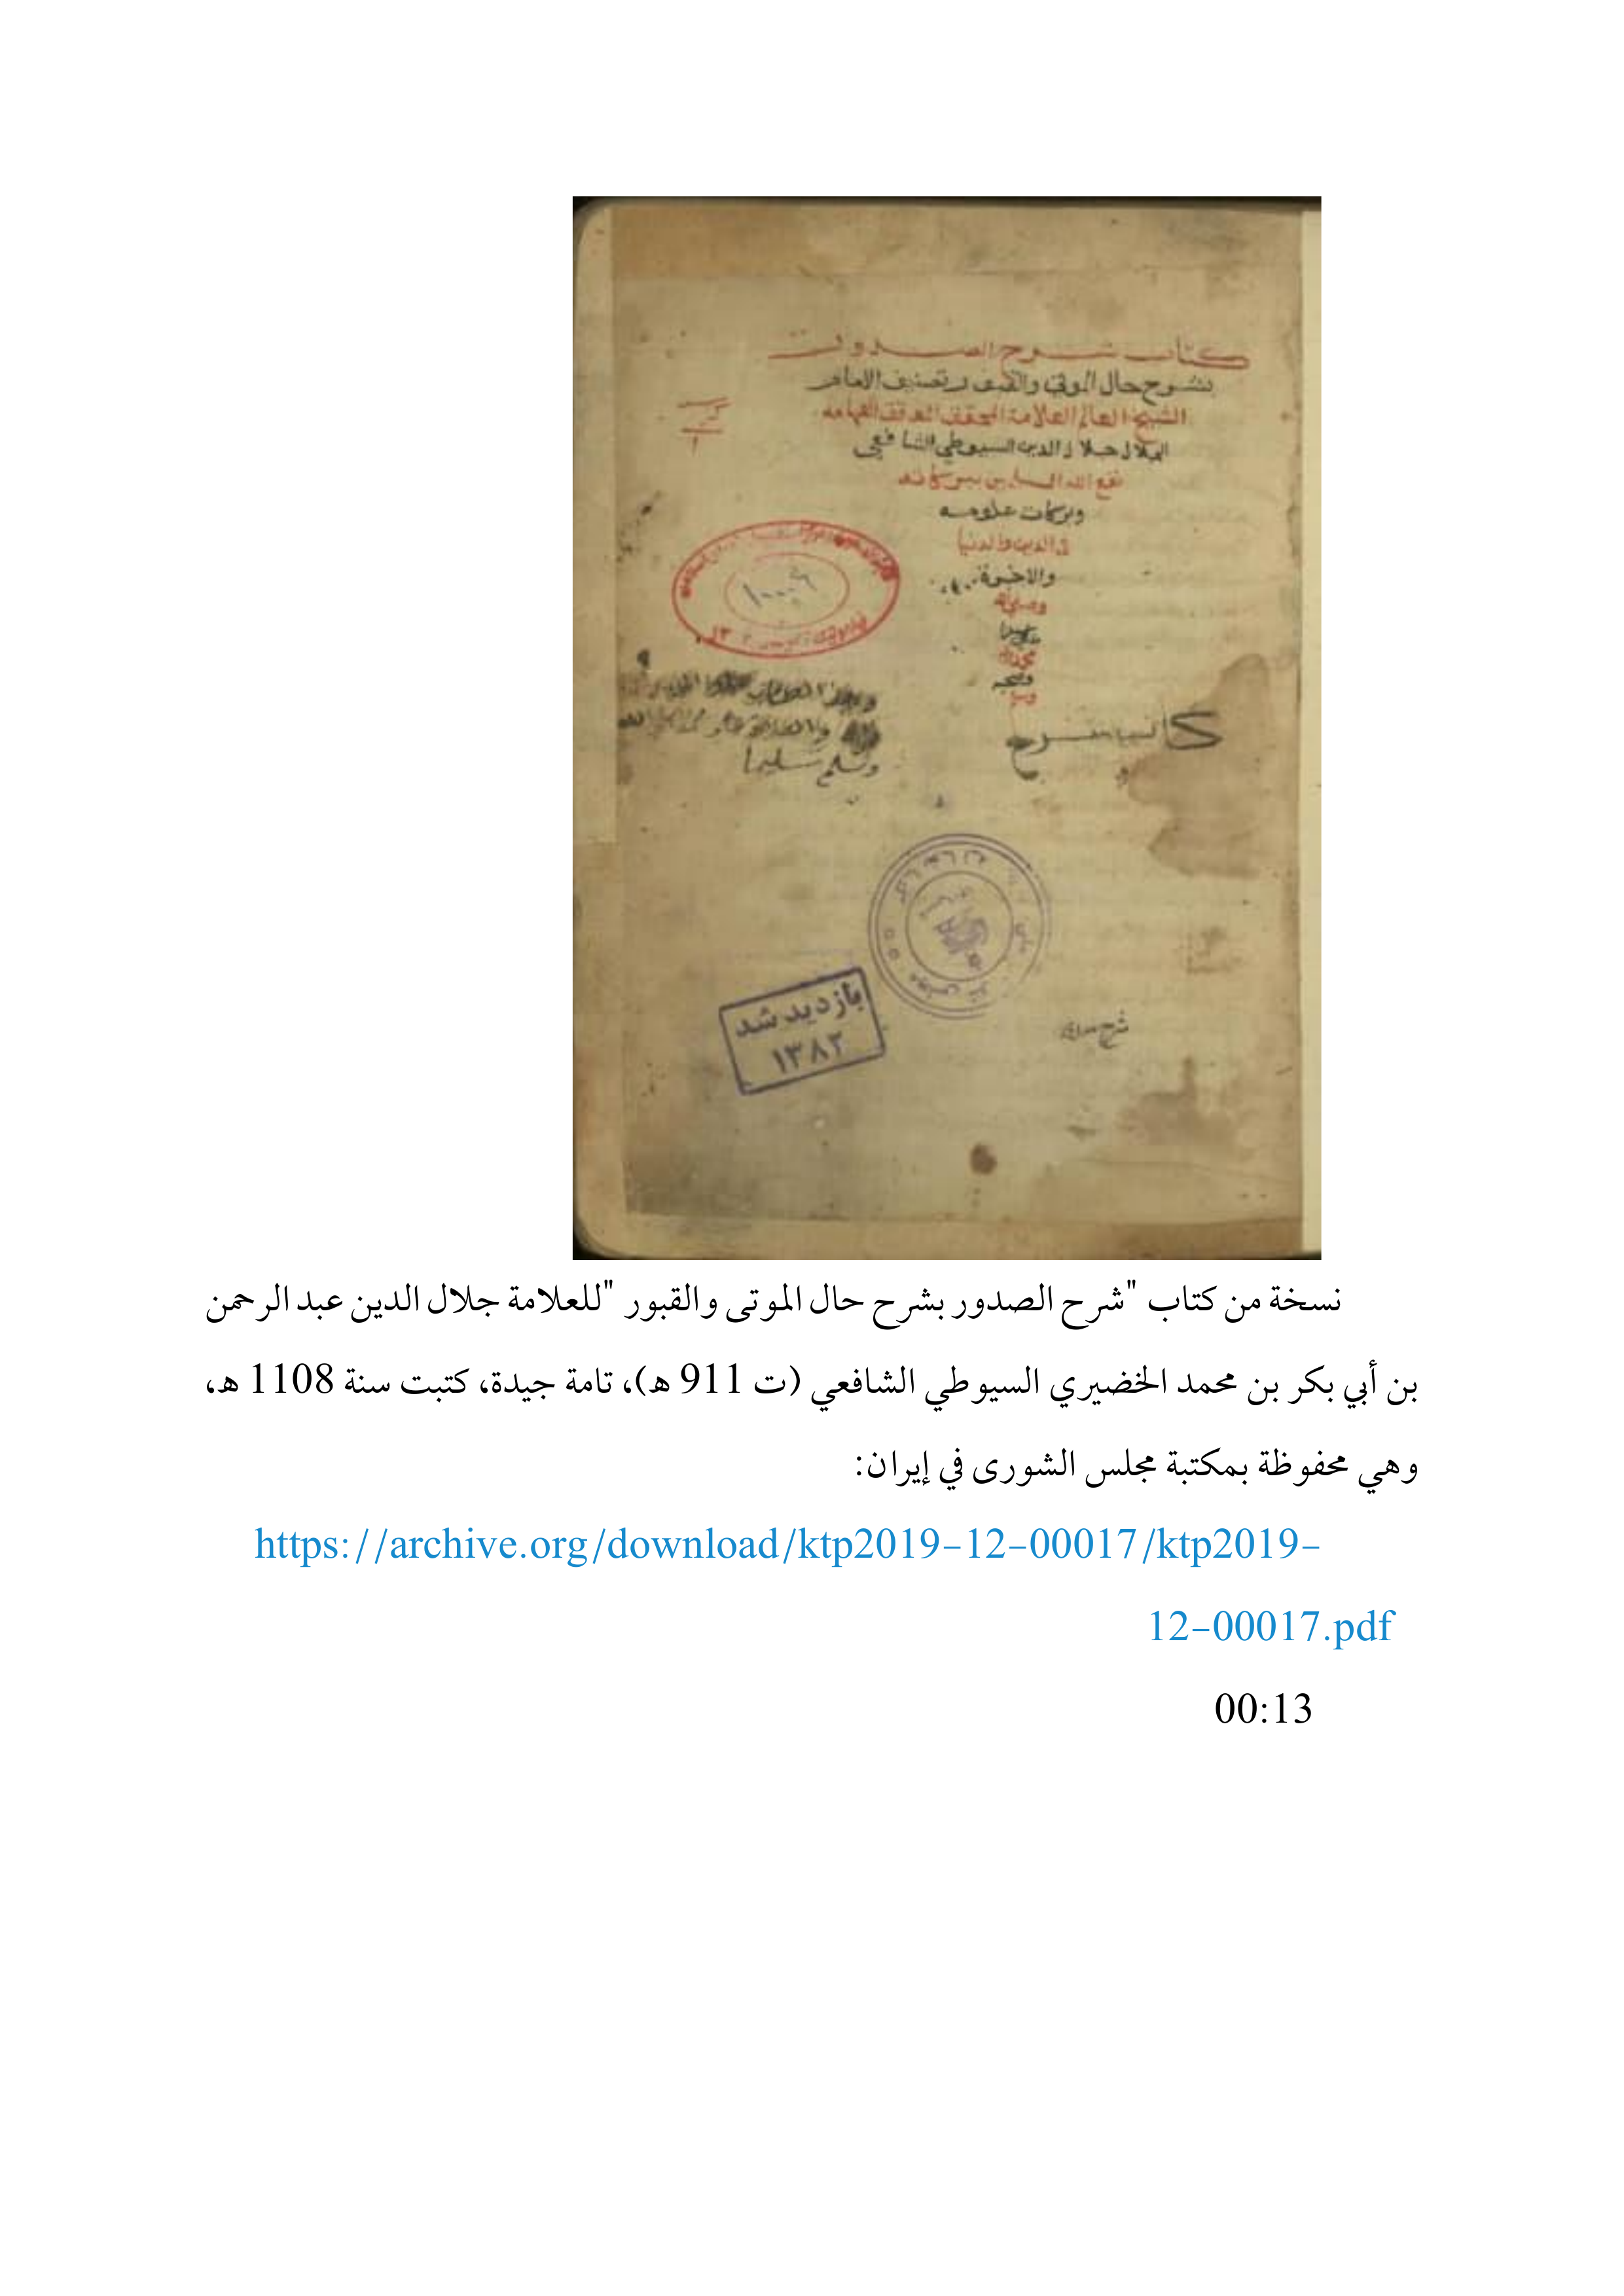 كتاب شرح الصدور
بشرح حال الموتى والقبور تصنيف الامام
الشيخ العالم العلامة المحقق المدقق الفهامه
جلال الدين السيوطي الشافعي
نفع الله المسلمين
وبركات علومه
في الدين والدنيا
والاخرة
وصلى الله
على سيدنا
محمد واله
وصحبه
وسلم
١٠٠٠٤
وسلم تسليما
كتاب شرح
بازدید شد
۱۳۸۲
نسخة من كتاب "شرح الصدور بشرح حال الموتى والقبور "للعلامة جلال الدين عبد الرحمن
بن أبي بكر بن محمد الخضيري السيوطي الشافعي (ت 911 ه)، تامة جيدة، كتبت سنة 1108 ه،
وهي محفوظة بمكتبة مجلس الشورى في إيران:
https://archive.org/download/ktp2019-12-00017/ktp2019-
12-00017.pdf
00:13